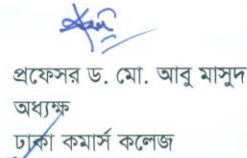 প্রফেসর ড. মো. আবু মাসুদ
অধ্যক্ষ
ঢাকা কমার্স কলেজ